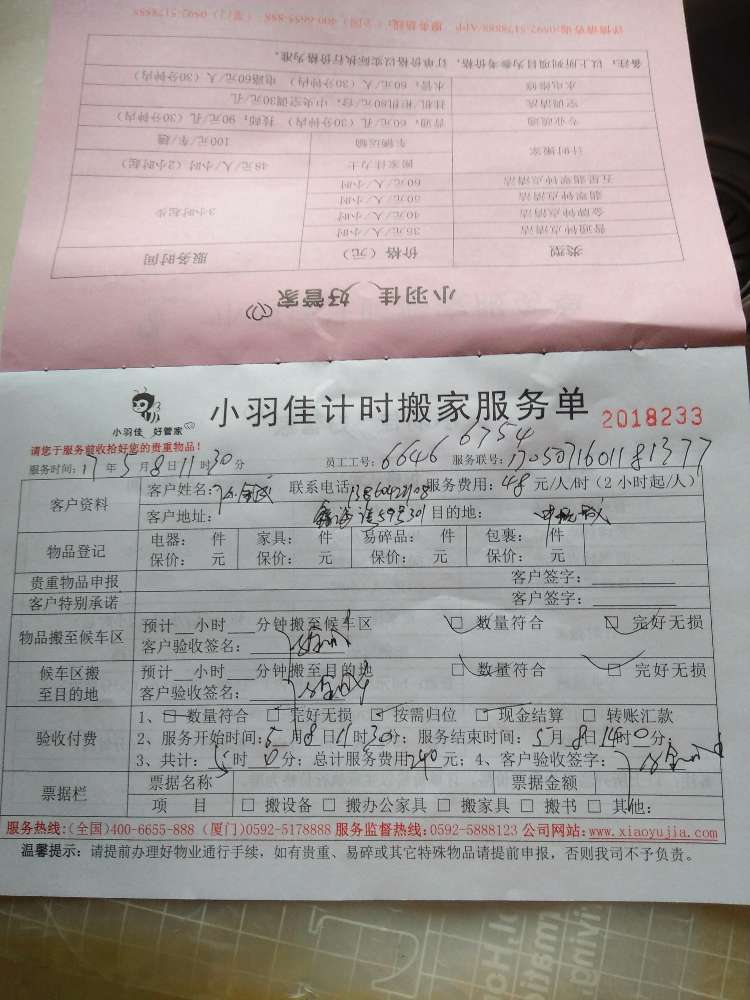 详情咨询:0592-5178888/APP 服务热线:(全国)400-6655-888 (厦门)0592-5178888
备注:以上所列项目为参考价格,订单价格以实际执行价格为准。
水电维修 水管:60元/人(30分钟内) 电路60元/人(30分钟内)
空调清洗 挂机/柜机80元/台,中央空调30元/孔
专业疏通 普通:60元/孔(30分钟内) 特殊:90元/孔(30分钟内)
计时搬家 车辆运输 100元/车/趟
搬家佳力士 48元/人/小时(2小时起)
五星翡翠钟点清洁 60元/人/小时
翡翠钟点清洁 50元/人/小时
金牌钟点清洁 40元/人/小时 3小时起步
普通钟点清洁 35元/人/小时
类型 价格(元) 服务时间
小羽佳 好管家
小羽佳 好管家
小羽佳计时搬家服务单 2018233
请您于服务前收拾好您的贵重物品!
6754
服务时间:17年5月8日11时30分 员工工号:6646 服务联号:1705071601181377
客户资料 客户姓名: 联系电话 服务费用:48元/人/时(2小时起/人)
客户地址: 59号301 目的地:
物品登记 电器: 件 家具: 件 易碎品: 件 包裹: 件
保价: 元 保价: 元 保价: 元 保价: 元
贵重物品申报 客户签字:
客户特别承诺 客户签字:
物品搬至候车区 预计__小时___分钟搬至候车区 □ 数量符合 □ 完好无损
客户验收签名:
候车区搬至目的地 预计__小时___分钟搬至目的地 □ 数量符合 □ 完好无损
客户验收签名:
验收付费 1、□ 数量符合 □ 完好无损 □ 按需归位 □ 现金结算 □ 转账汇款
2、服务开始时间:5月8日11时30分;服务结束时间:5月8日14时0分;
3、共计:5时0分;总计服务费用240元;4、客户验收签字:
票据栏 票据名称 票据金额
项 目 □ 搬设备 □ 搬办公家具 □ 搬家具 □ 搬书 □ 其他:
服务热线:(全国)400-6655-888 (厦门)0592-5178888 服务监督热线:0592-5888123 公司网站:www.xiaoyujia.com
温馨提示:请提前办理好物业通行手续,如有贵重、易碎或其它特殊物品请提前申报,否则我司不予负责。